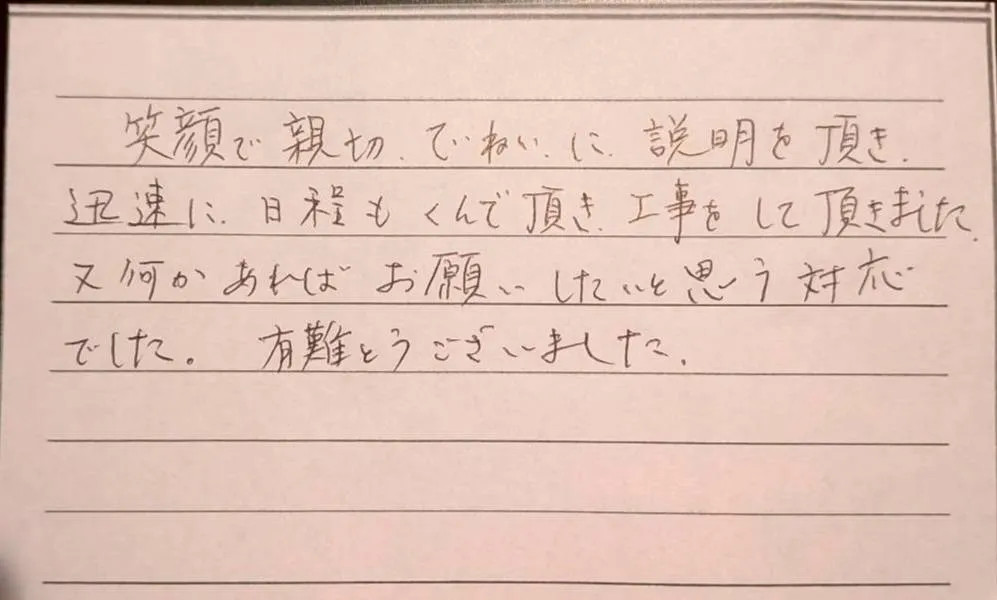 笑顔で親切、でいねいに、説明を頂き、
迅速に、日程もくんで頂き、工事をして頂きました。
又何かあればお願いしたいと思う対応
でした。 有難とうございました。